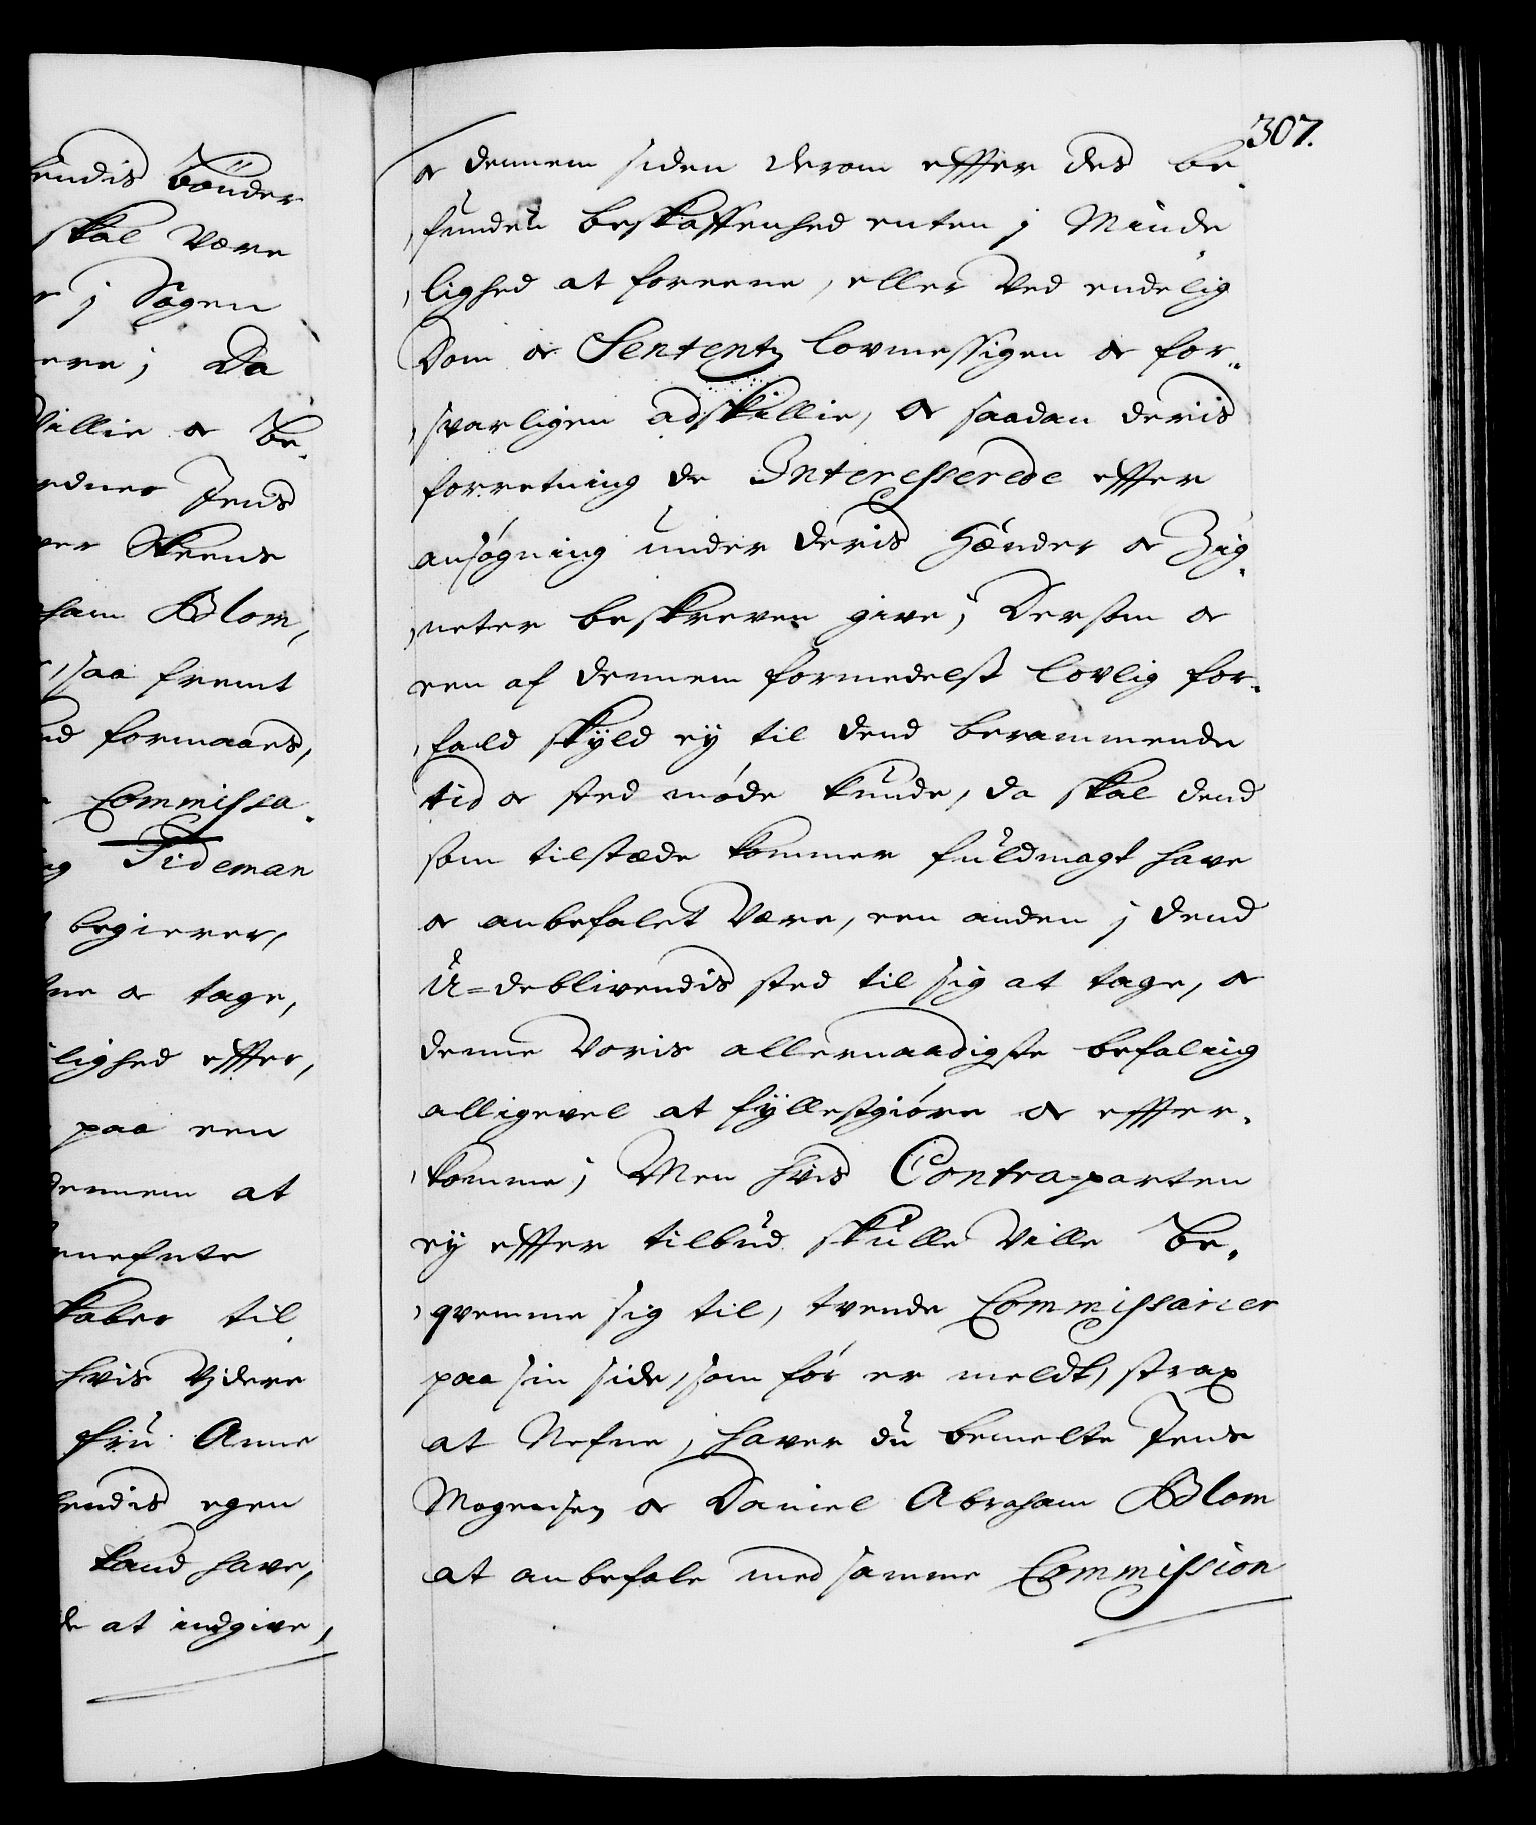 hendis Bönder
skal være
r j Sagen
ere; Da
Villie og Be¬
ordner Jens
ver Skeens
ham Blom,
saa fremt
nd formaaes,
Commissa¬
ng Tideman
begierer,
ne og tage,
lighed effter,
paa een
dennem at
nefnte
skaber til
hvis vjdere
frü Anne
hendis egen
kand have,
de at indgive,
307.
og dennem siden derom effter des be¬
fundeñ beskaffenhed enten j Minde¬
lighed at foreene, eller Ved endelig
Dom og Sententz lovmessigen og for¬
svarligen adskillie, Og saadan deris
forretning de Interesserede effter
ansøgning under deris Hænder og Zig¬
neter beskreven give; Dersom og
een af dennem formedelst lovlig for¬
fald skÿld eÿ til dend berammende
tid og sted møde kunde, da skal dend
som tilstæde kommer fuldmagt have
og anbefalet være, een anden j dend
U=deblivendis sted til sig at tage, og
denne Voris allernaadigste befaling
alligevel at fÿllestgiøre og effter¬
komme; Men hvis Contra-parten
eÿ effter tilbud skulle Ville Be¬
qvemme sig til, tvende Commissarier
paa sin side, som før er meldt, strax
at Nefne, haver du bemelte Jens
Mogensen og Daniel Abraham Blom
at anbefale med samme Commission